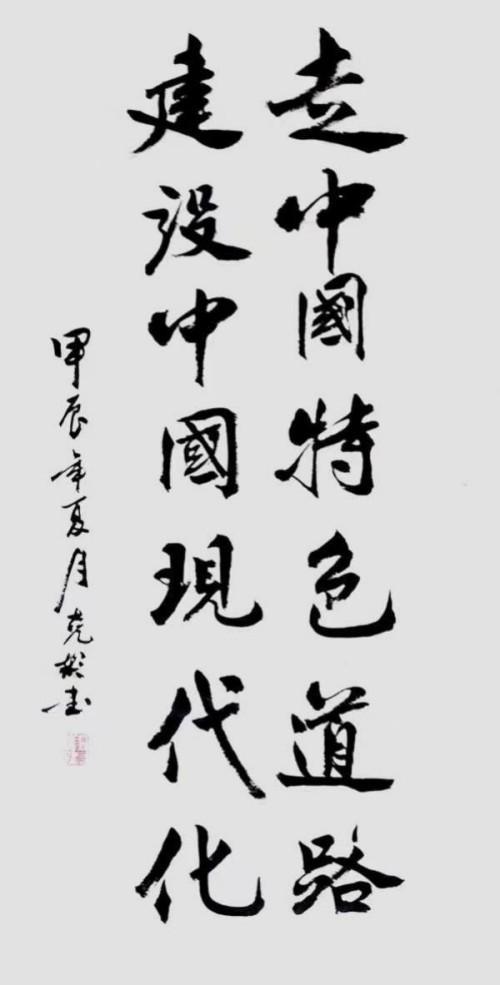 走中國特色道路
建設中國現代化
甲辰年夏月堯彬书